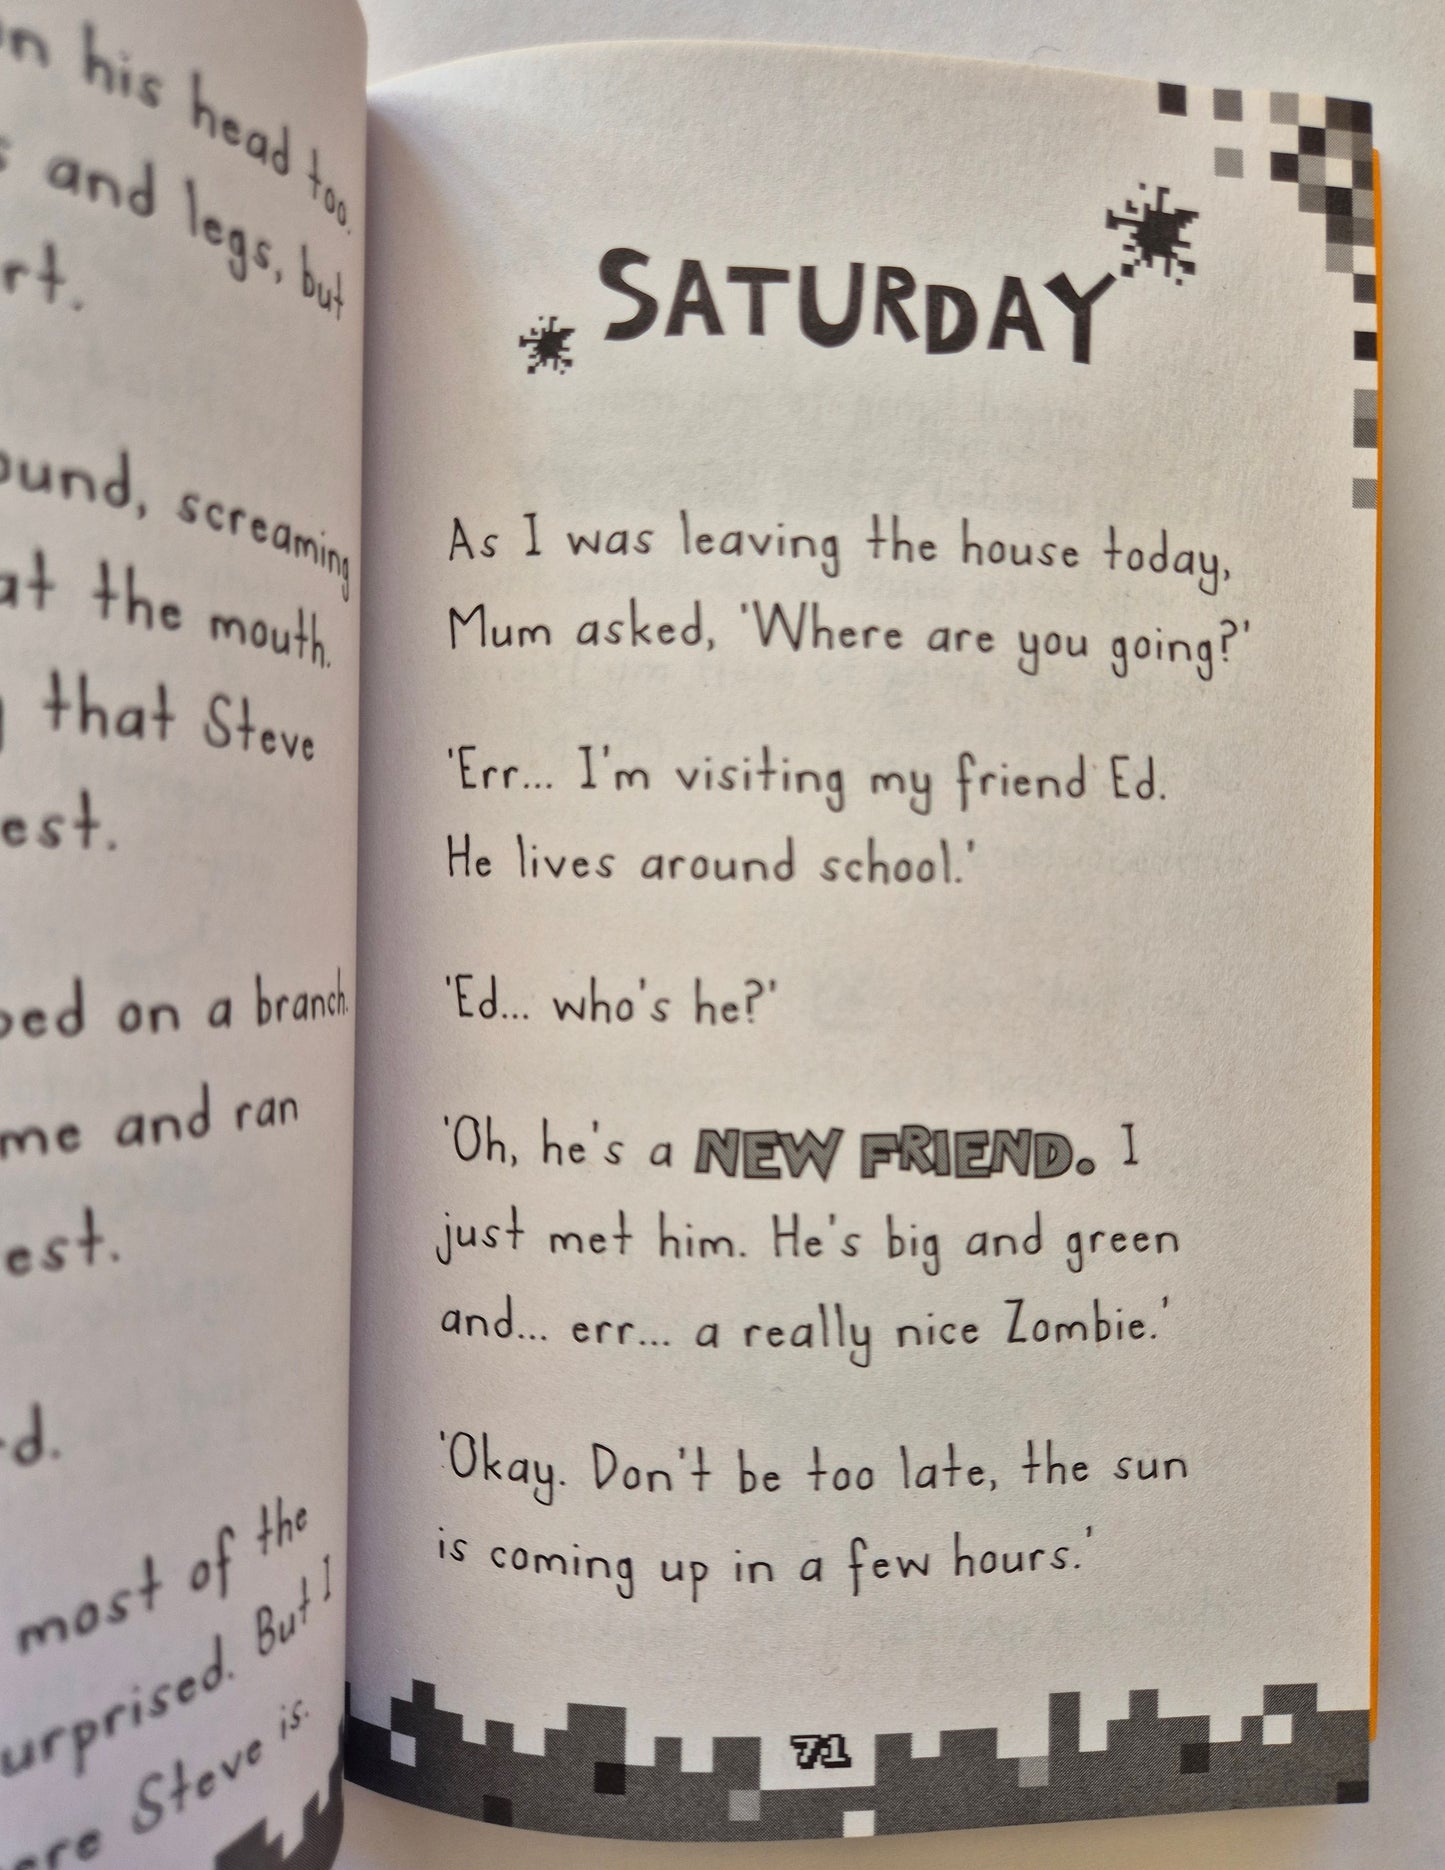 his head too.
and legs, but
screaming
at the mouth.
that Steve
on a branch.
me and ran
most of the
But I
Steve is.
SATURDAY
As I was leaving the house today,
Mum asked, 'Where are you going?'
'Err... I'm visiting my friend Ed.
He lives around school.'
'Ed... who's he?'
'Oh, he's a NEW FRIEND. I
just met him. He's big and green
and... err... a really nice Zombie.'
'Okay. Don't be too late, the sun
is coming up in a few hours.'
71